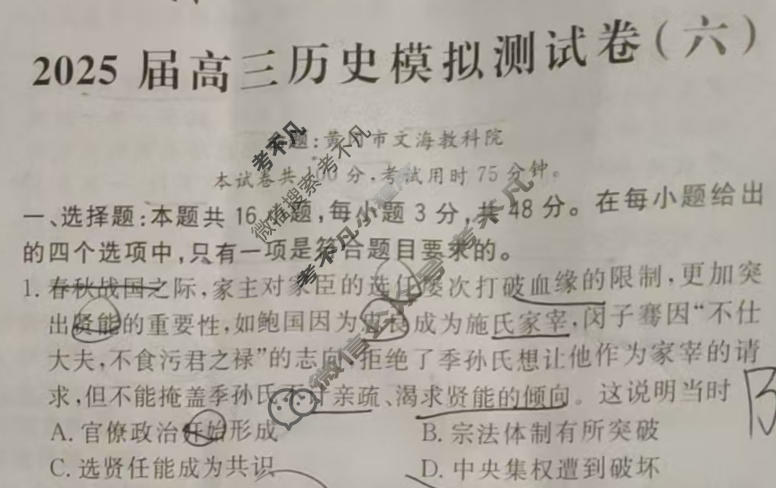 2025 届高三历史模拟测试卷(六)
题:黄冈市文海教科院
本试卷共100分,考试用时75分钟。
一、选择题:本题共16小题,每小题3分,共48分。在每小题给出
的四个选项中,只有一项是符合题目要求的。
1. 春秋战国之际,家主对家臣的选任屡次打破血缘的限制,更加突
出贤能的重要性,如鲍国因为忠良成为施氏家宰,闵子骞因“不仕
大夫,不食污君之禄”的志向,拒绝了季孙氏想让他作为家宰的请
求,但不能掩盖季孙氏不计亲疏、渴求贤能的倾向。这说明当时
B
A. 官僚政治开始形成
B. 宗法体制有所突破
C. 选贤任能成为共识
D. 中央集权遭到破坏
考不凡
微信搜索考不凡